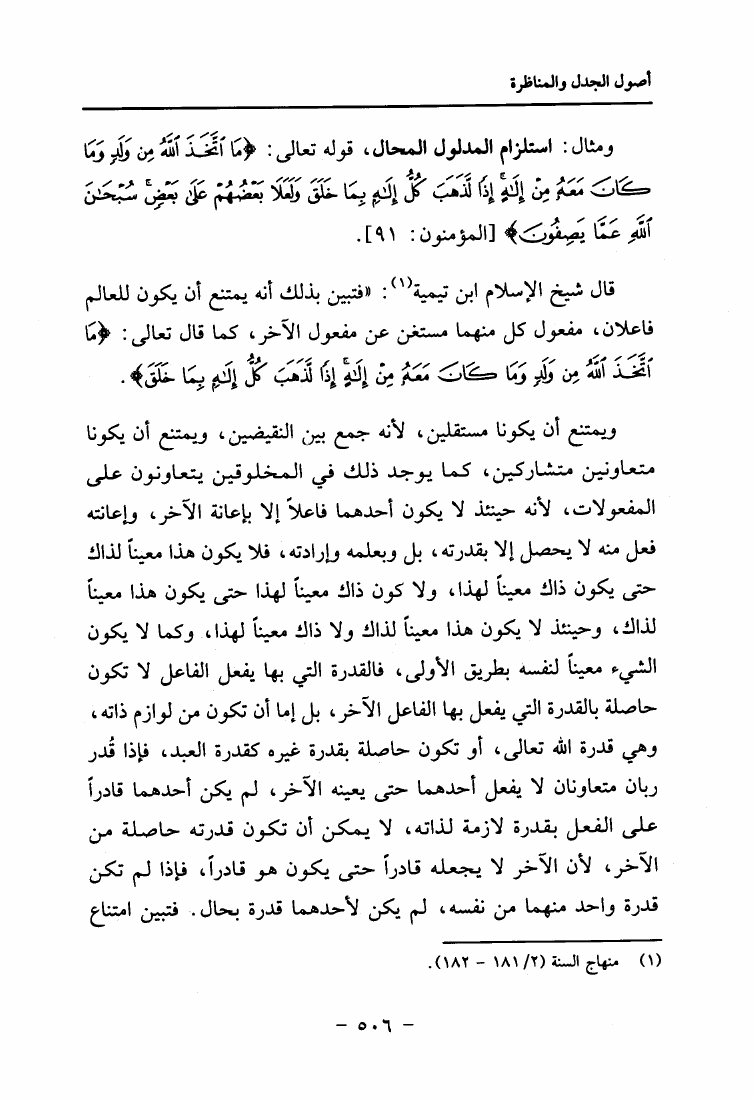 أصول الجدل والمناظرة
ومثال: استلزام المدلول المحال، قوله تعالى: ﴿مَا ٱتَّخَذَ ٱللَّهُ مِن وَلَدٍ وَمَا
كَانَ مَعَهُۥ مِنْ إِلَٰهٍ ۚ إِذًا لَّذَهَبَ كُلُّ إِلَٰهٍۭ بِمَا خَلَقَ وَلَعَلَا بَعْضُهُمْ عَلَىٰ بَعْضٍ ۚ سُبْحَٰنَ
ٱللَّهِ عَمَّا يَصِفُونَ﴾ [المؤمنون: ٩١].
قال شيخ الإسلام ابن تيمية(١): «فتبين بذلك أنه يمتنع أن يكون للعالم
فاعلان، مفعول كل منهما مستغن عن مفعول الآخر، كما قال تعالى: ﴿مَا
ٱتَّخَذَ ٱللَّهُ مِن وَلَدٍ وَمَا كَانَ مَعَهُۥ مِنْ إِلَٰهٍ ۚ إِذًا لَّذَهَبَ كُلُّ إِلَٰهٍۭ بِمَا خَلَقَ﴾.
ويمتنع أن يكونا مستقلين، لأنه جمع بين النقيضين، ويمتنع أن يكونا
متعاونين متشاركين، كما يوجد ذلك في المخلوقين يتعاونون على
المفعولات، لأنه حينئذ لا يكون أحدهما فاعلاً إلا بإعانة الآخر، وإعانته
فعل منه لا يحصل إلا بقدرته، بل وبعلمه وإرادته، فلا يكون هذا معيناً لذاك
حتى يكون ذاك معيناً لهذا، ولا كون ذاك معيناً لهذا حتى يكون هذا معيناً
لذاك، وحينئذ لا يكون هذا معيناً لذاك ولا ذاك معيناً لهذا، وكما لا يكون
الشيء معيناً لنفسه بطريق الأولى، فالقدرة التي بها يفعل الفاعل لا تكون
حاصلة بالقدرة التي يفعل بها الفاعل الآخر، بل إما أن تكون من لوازم ذاته،
وهي قدرة الله تعالى، أو تكون حاصلة بقدرة غيره كقدرة العبد، فإذا قُدر
ربان متعاونان لا يفعل أحدهما حتى يعينه الآخر، لم يكن أحدهما قادراً
على الفعل بقدرة لازمة لذاته، لا يمكن أن تكون قدرته حاصلة من
الآخر، لأن الآخر لا يجعله قادراً حتى يكون هو قادراً، فإذا لم تكن
قدرة واحد منهما من نفسه، لم يكن لأحدهما قدرة بحال. فتبين امتناع
(١) منهاج السنة (٢/١٨١ - ١٨٢).
- ٥٠٦ -